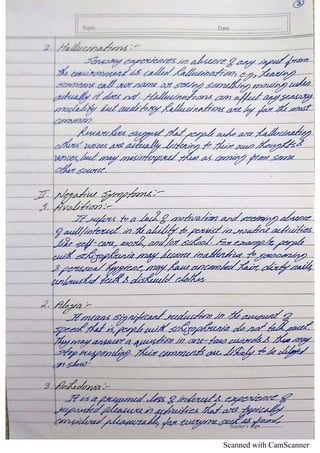 3
Topic
Date
2. Hallucinations:-
Sensory experiences in absence of any input from
the environment is called Hallucination, e.g., hearing
someone call our name or seeing something moving when
actually it does not. Hallucinations can affect any sensory
modality but auditory Hallucinations are by far the most
common.
Researchers suggest that people who are hallucinating
others' voices are actually listening to their own thoughts/
voices, but may misinterpret them as coming from some
other source.
II. Negative Symptoms:-
Avolition:-
It refers to a lack of motivation and seeming absence
of will/interest in the ability to persist in routine activities
like self-care, work, and/or school. For example, people
with schizophrenia may become inattentive to grooming
& personal hygiene, may have uncombed hair, dirty nails,
unbrushed teeth & disheveled clothes.
2. Alogia:-
It means significant reduction in the amount of
speech that is, people with schizophrenia do not talk much.
They may answer a question in one-two words & then may
stop responding. Their comments are likely to be delayed
or slow.
3. Anhedonia:-
It is a presumed loss of interest & experience of
reported pleasure in activities that are typically
considered pleasurable, for everyone such as food,
Teacher's Sign
Scanned with CamScanner